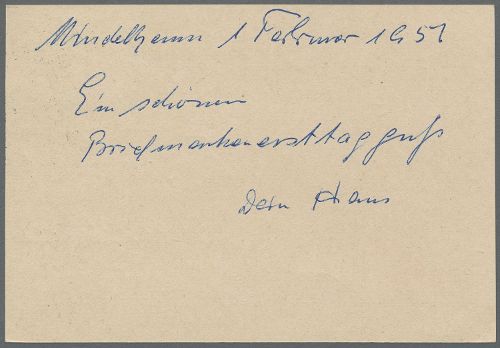 Mindelheim 1 Februar 1951
Ein schönen
Briefmarkenersttaggruß
Dein Hans